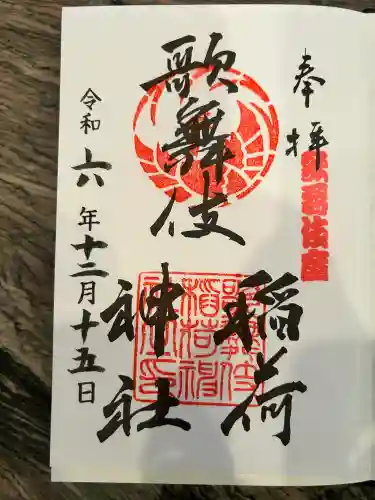 奉拝
歌舞伎座
歌舞伎
稲荷
神社
令和六年十二月十五日